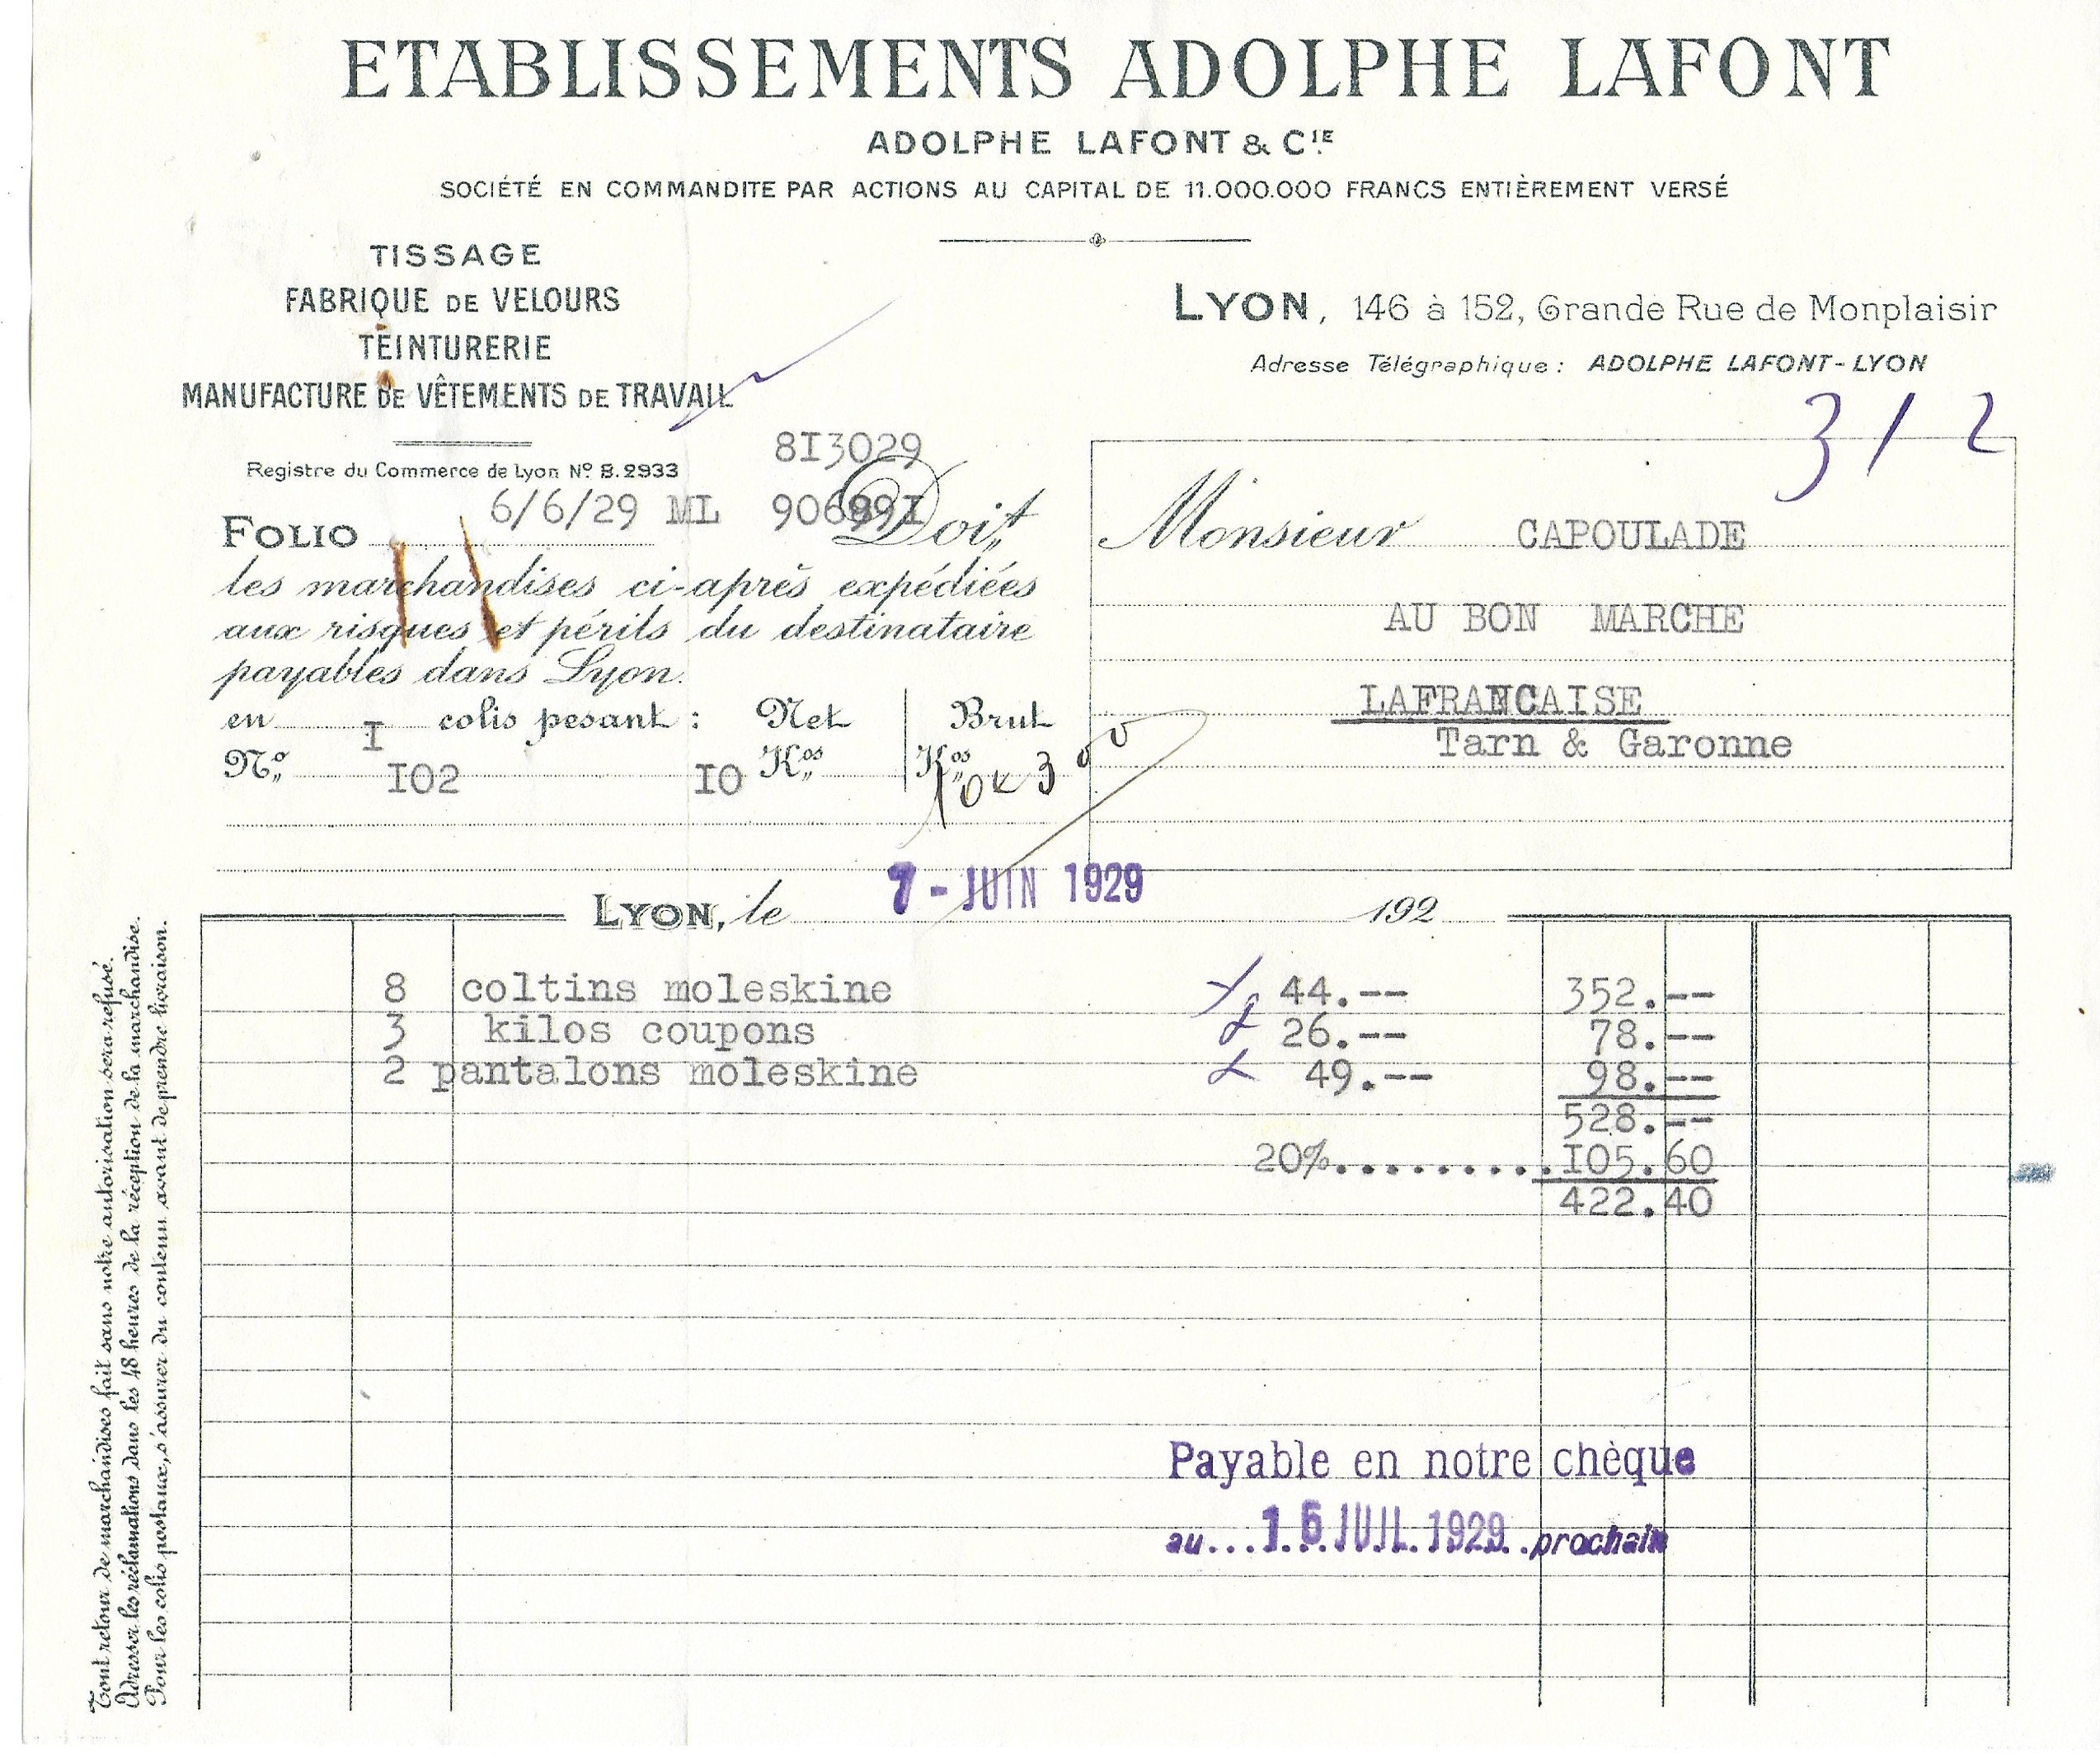 ETABLISSEMENTS ADOLPHE LAFONT
ADOLPHE LAFONT & CIE
SOCIÉTÉ EN COMMANDITE PAR ACTIONS AU CAPITAL DE 11.000.000 FRANCS ENTIÈREMENT VERSÉ
TISSAGE
FABRIQUE DE VELOURS
TEINTURERIE
MANUFACTURE DE VÊTEMENTS DE TRAVAIL
LYON, 146 à 152, Grande Rue de Monplaisir
Adresse Télégraphique : ADOLPHE LAFONT-LYON
312
Registre du Commerce de Lyon No B.2933
8I3029
6/6/29 ML
FOLIO
Doit
les marchandises ci-après expédiées
aux risques et périls du destinataire
payables dans Lyon.
en I colis pesant : Net Brut
No I02 I0 Kos Kos 10 k 300
Monsieur CAPOULADE
AU BON MARCHE
LAFRANCAISE
Tarn & Garonne
LYON, le 7 - JUIN 1929 192
8 coltins moleskine 44.-- 352.--
3 kilos coupons 26.-- 78.--
2 pantalons moleskine 49.-- 98.--
528.--
20%..........I05.60
422.40
Payable en notre chèque
au...15 JUIL. 1929..prochain
Tout retour de marchandises fait sans notre autorisation sera refusé.
Adresser les réclamations dans les 48 heures de la réception de la marchandise.
Pour les colis postaux, s'assurer du contenu avant de prendre livraison.